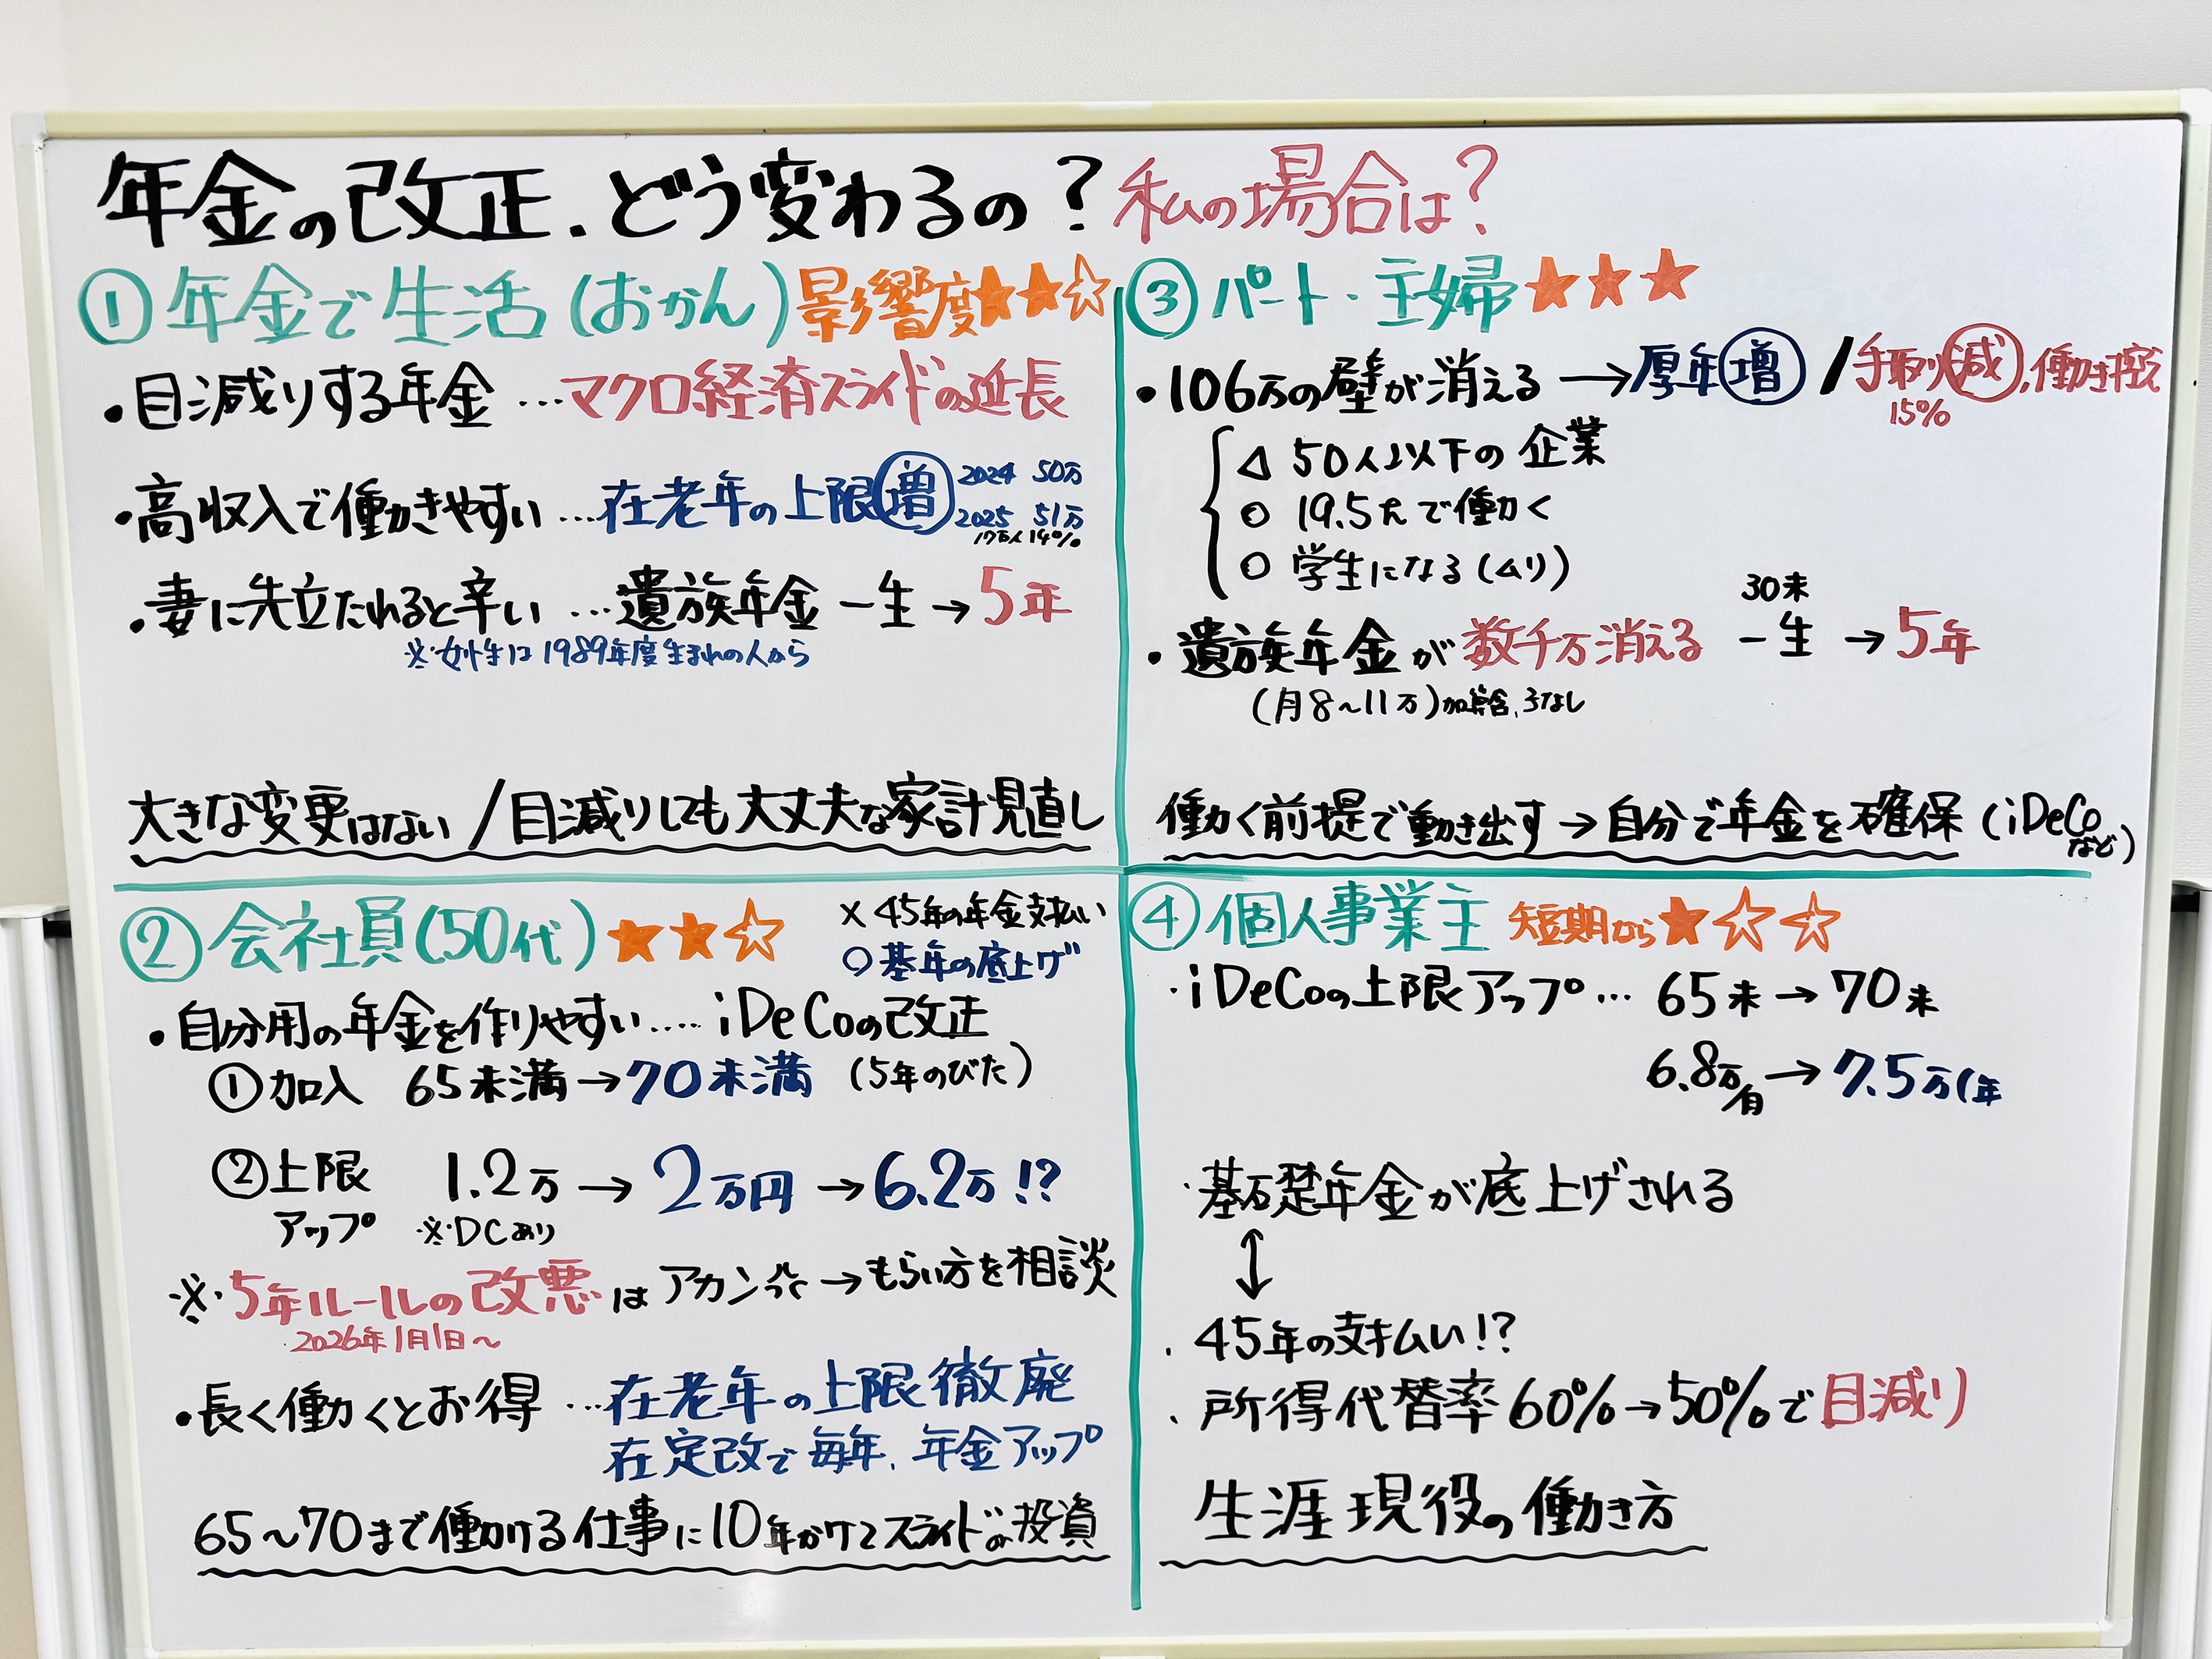 年金の改正.どう変わるの？私の場合は？
①年金で生活(おかん)影響度★★☆
・目減りする年金…マクロ経済スライドの延長
・高収入で働きやすい…在老年の上限増
2024 50万
2025 51万
17万人 14%
・妻に先立たれると辛い…遺族年金 一生→5年
※女性は1989年度生まれの人から
大きな変更はない/目減りしても大丈夫な家計見直し
②会社員(50代)★★☆
×45年の年金支払い
○基年の底上げ
・自分用の年金を作りやすい….iDeCoの改正
①加入 65未満→70未満(5年のびた)
②上限アップ 1.2万→2万円→6.2万!?
※DCあり
※5年ルールの改悪はアカン→もらい方を相談
2026年1月1日〜
・長く働くとお得…在老年の上限徹廃
在定改で毎年、年金アップ
65〜70まで働ける仕事に10年かけてスライドの投資
③パート・主婦★★★
・106万の壁が消える→厚年増/手取り減、働き控
15%
△50人以下の企業
○19.5hで働く
○学生になる(ムリ)
・遺族年金が数千万消える 一生→5年
30未
(月8〜11万)加算含、子なし
働く前提で動き出す→自分で年金を確保(iDeCoなど)
④個人事業主 短期なら★☆☆
・iDeCoの上限アップ… 65未→70未
6.8万/月→7.5万(年
・基礎年金が底上げされる
↕
・45年の支払い!?
・所得代替率60%→50%で目減り
生涯現役の働き方